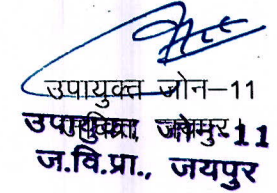 उपायुक्त जोन–11
उपायुक्त, जोन-11
ज.वि.प्रा., जयपुर